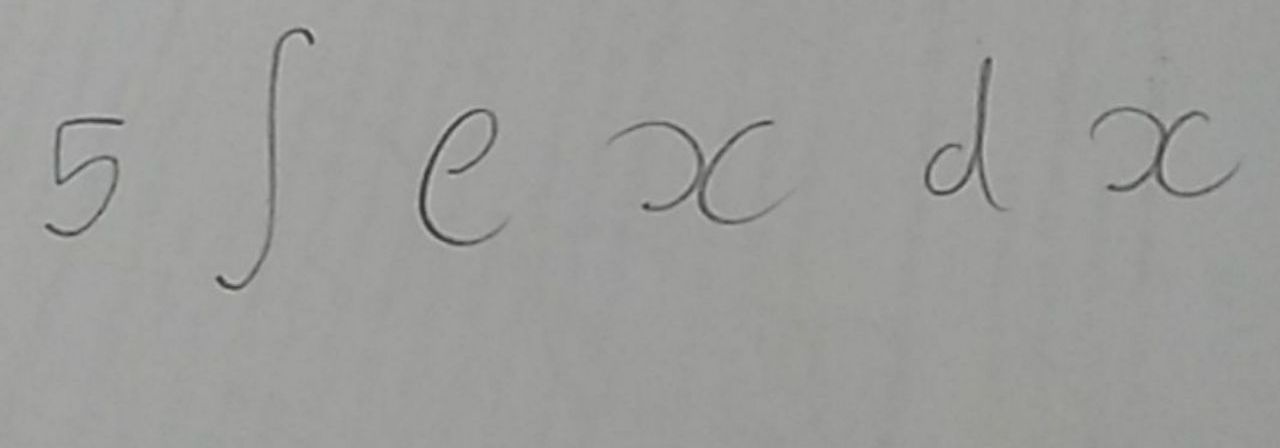 5 ∫ e x d x